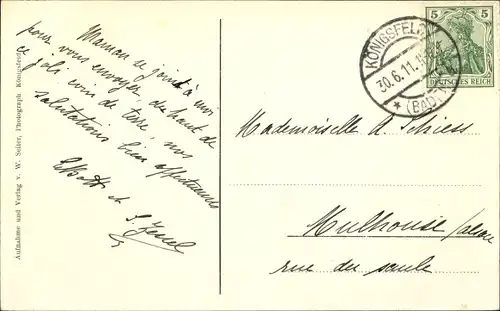 Maman se joint à moi
pour vous envoyer du haut de
ce joli coin de terre, nos
salutations bien affectueuses
et
Aufnahme und Verlag v. W. Seiber, Photograph. Königsfeld
KÖNIGSFELD
30.6.11.
(BADEN)
5 5
DEUTSCHES REICH
Mademoiselle A. Schiess
Mulhouse /alsace
rue du saule